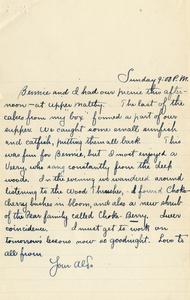 Sunday 9:00 P.M.
Bennie and I had our picnic this after-
noon - at upper Maltby. The last of the
cakes from my box formed a part of our
supper. We caught some small sunfish
and catfish, putting them all back. This
was fun for Bennie, but I most enjoyed a
Veery, who sang constantly from the deep
woods. In the evening we wandered around
listening to the Wood Thrushes, I found Choke
cherry bushes in bloom, and also a new shrub
of the Pear family called Choke-berry. Queer
coincidence. I must get to work on
tomorrows lessons now so goodnight. Love to
all from
Your Aldo.